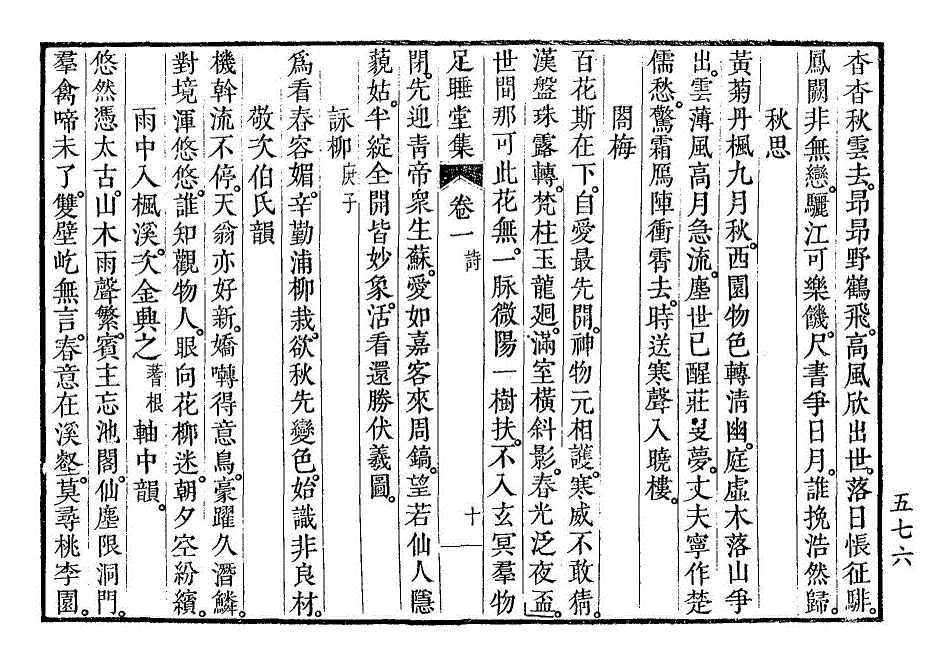 杳杳秋雲去。昂昂野鶴飛。高風欣出世。落日悵征騑。
鳳闕非無戀。驪江可樂饑。尺書爭日月。誰挽浩然歸。
秋思
黃菊丹楓九月秋。西園物色轉淸幽。庭虛木落山爭
出。雲薄風高月急流。塵世已醒莊叟夢。丈夫寧作楚
儒愁。驚霜鴈陣衝霄去。時送寒聲入曉樓。
閤梅
百花斯在下。自愛最先開。神物元相護。寒威不敢猜。
漢盤珠露轉。梵柱玉龍廻。滿室橫斜影。春光泛夜盃。
世間那可此花無。一脉微陽一樹扶。不入玄冥羣物
足睡堂集 卷一 詩 十
閉。先迎靑帝衆生蘇。愛如嘉客來周鎬。望若仙人隱
藐姑。半綻全開皆妙象。活看還勝伏羲圖。
詠柳 庚子
爲看春容媚。辛勤浦柳栽。欲秋先變色。始識非良材。
敬次伯氏韻
機斡流不停。天翁亦好新。嬌囀得意鳥。豪躍久潛鱗。
對境渾悠悠。誰知觀物人。眼向花柳迷。朝夕空紛繽。
雨中入楓溪。次金興之 蓍根 軸中韻。
悠然憑太古。山木雨聲繁。賓主忘池閣。仙塵限洞門。
羣禽啼未了。雙壁屹無言。春意在溪壑。莫尋桃李園。
五七六